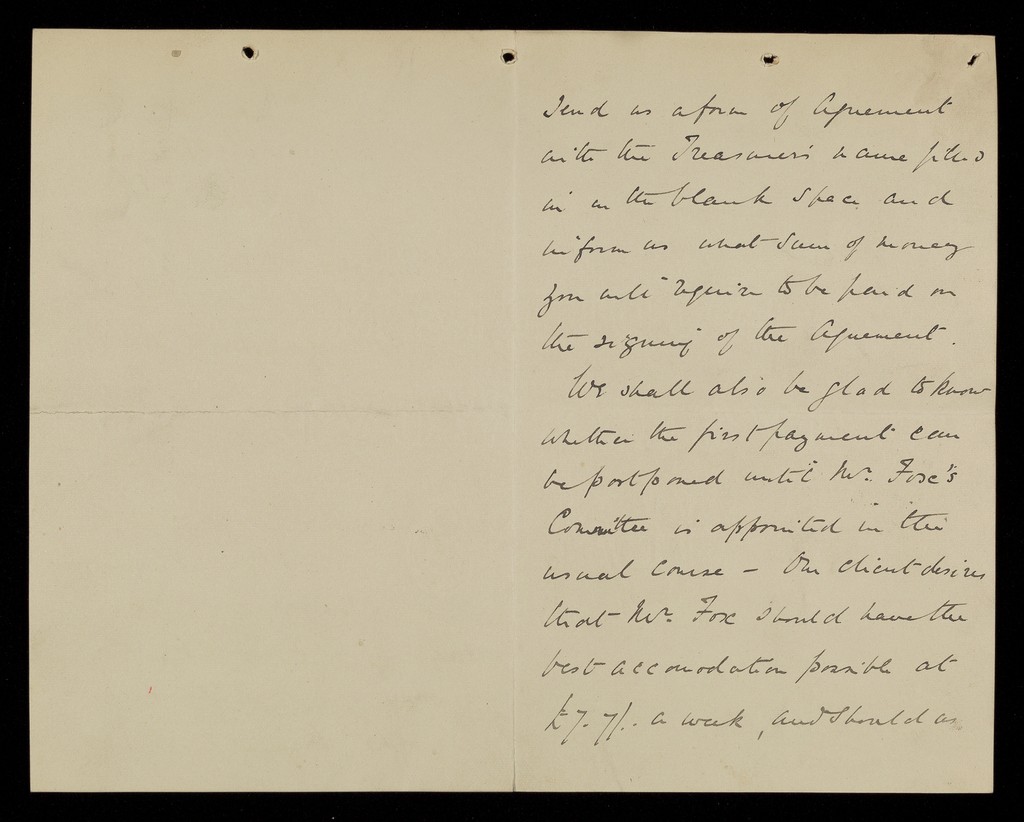 Send us a form of Agreement
with the Treasurer's name filled
in in the blank space and
inform us what sum of money
you will require to be paid on
the signing of the Agreement.
We shall also be glad to know
whether the first payment can
be postponed until Mr. Fox's
Committee is appointed in the
usual course – Our client desires
that Mr. Fox should have the
best accomodation possible at
£7. 7/. a week, and should